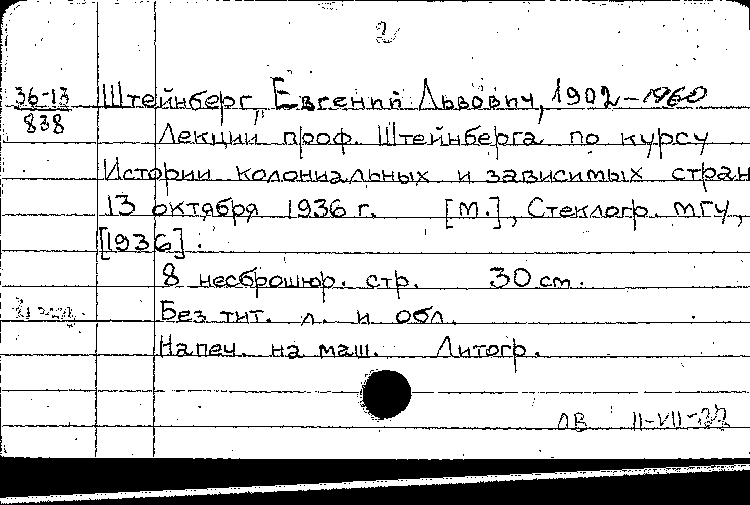 2
36-13 Штейнберг, Евгений Львович, 1902-1960
838 Лекции проф. Штейнберга по курсу
Истории колониальных и зависимых стран
13 октября 1936 г. [М.], Стеклогр. МГУ,
[1936].
8 несброшюр. стр. 30 см.
Без тит. л. и обл.
Напеч. на маш. Литогр.